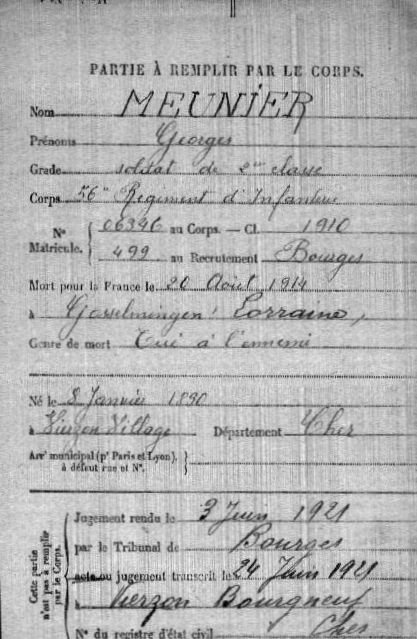 PARTIE À REMPLIR PAR LE CORPS.
Nom MEUNIER
Prénoms Georges
Grade soldat de 2me classe
Corps Régiment d'Infanterie
No 06396 au Corps. — Cl. 1910
Matricule. 499 au Recrutement Bourges
Mort pour la France le 20 Août 1914
à Gosselmingen Lorraine,
Genre de mort Tué à l'ennemi
Né le 8 Janvier 1890
à Vierzon Village Département Cher
Arrt municipal (pr Paris et Lyon),
à défaut rue et No.
Cette partie
n'est pas à remplir
par le Corps.
Jugement rendu le 3 Juin 1921
par le Tribunal de Bourges
acte ou jugement transcrit le 24 Juin 1921
à Vierzon Bourgneuf
No du registre d'état civil Cher